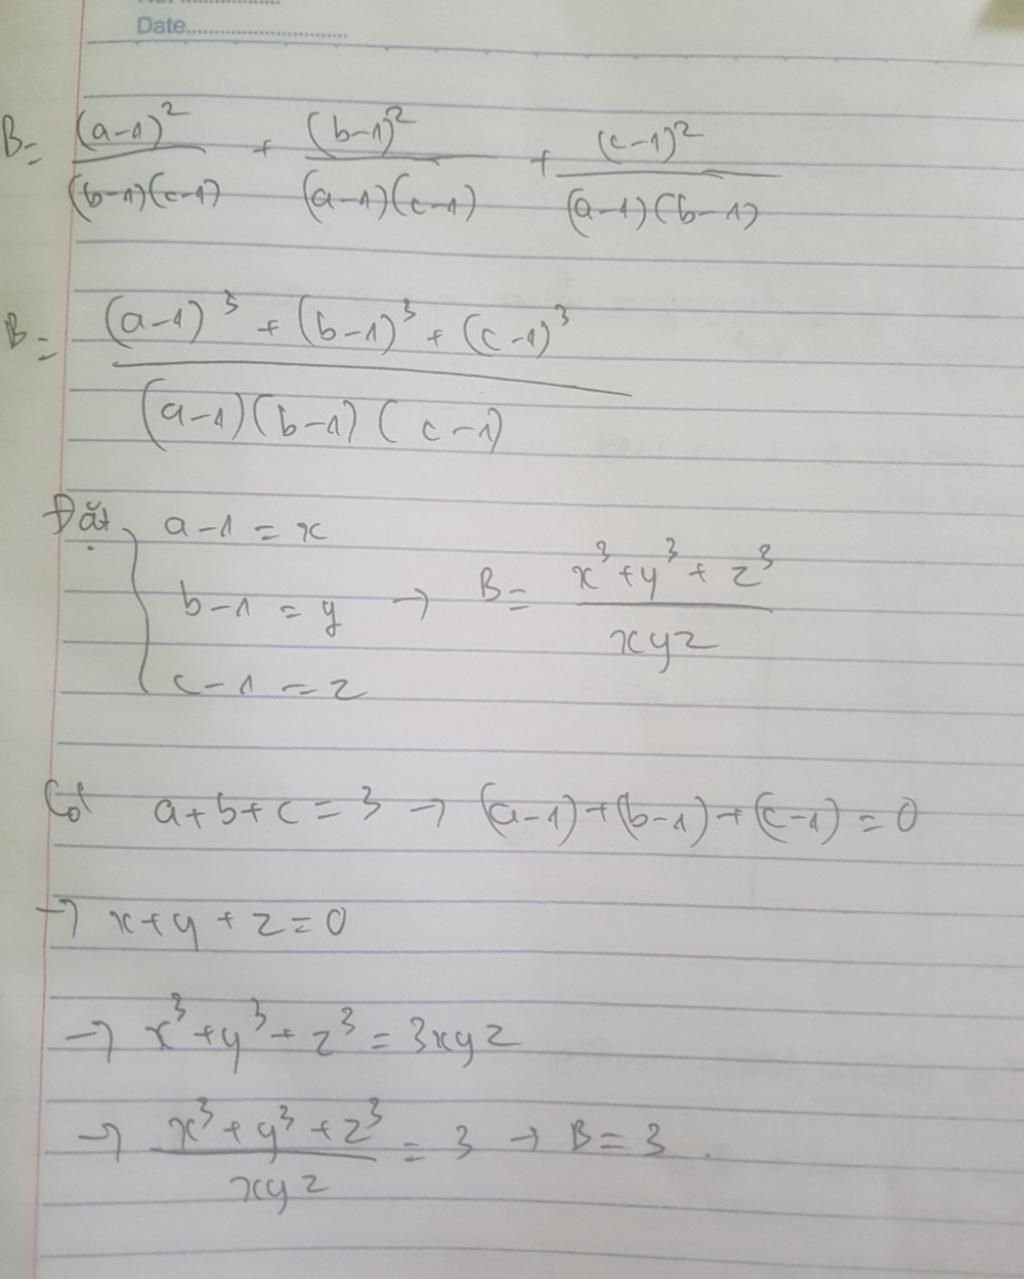 Date
B = (a-1)²/((b-1)(c-1)) + (b-1)²/((a-1)(c-1)) + (c-1)²/((a-1)(b-1))
B = ((a-1)³ + (b-1)³ + (c-1)³)/((a-1)(b-1)(c-1))
Đặt { a-1 = x
b-1 = y → B = (x³ + y³ + z³)/(xyz)
c-1 = z
Có a+b+c = 3 → (a-1)+(b-1)+(c-1) = 0
→ x+y+z = 0
→ x³+y³+z³ = 3xyz
→ (x³+y³+z³)/(xyz) = 3 → B = 3.